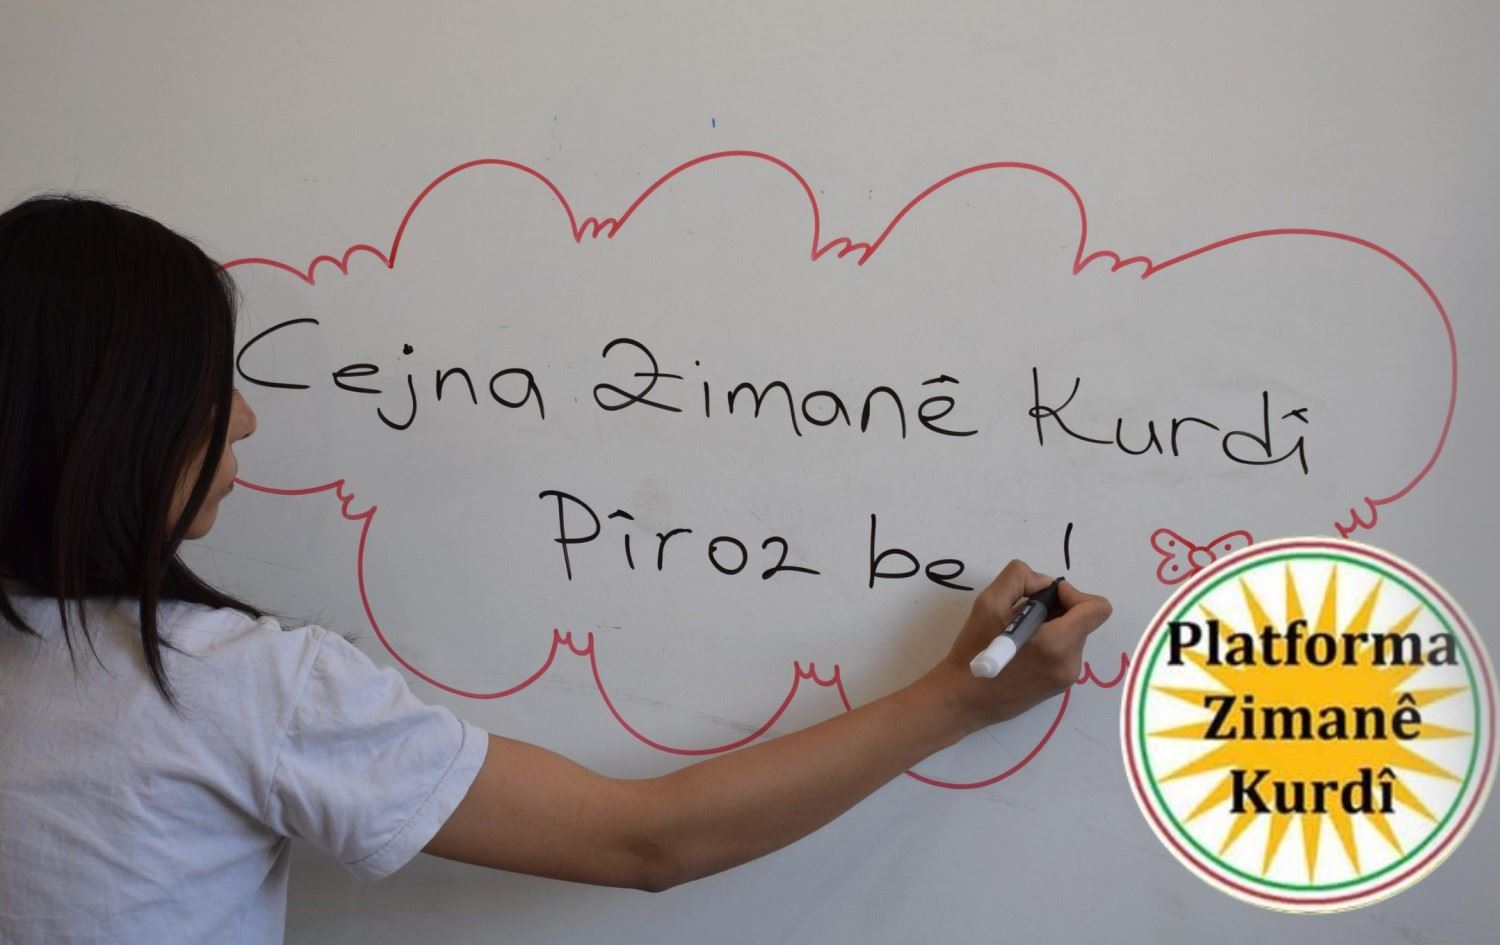 Cejna Zimanê Kurdî
Pîroz be !
Platforma
Zimanê
Kurdî